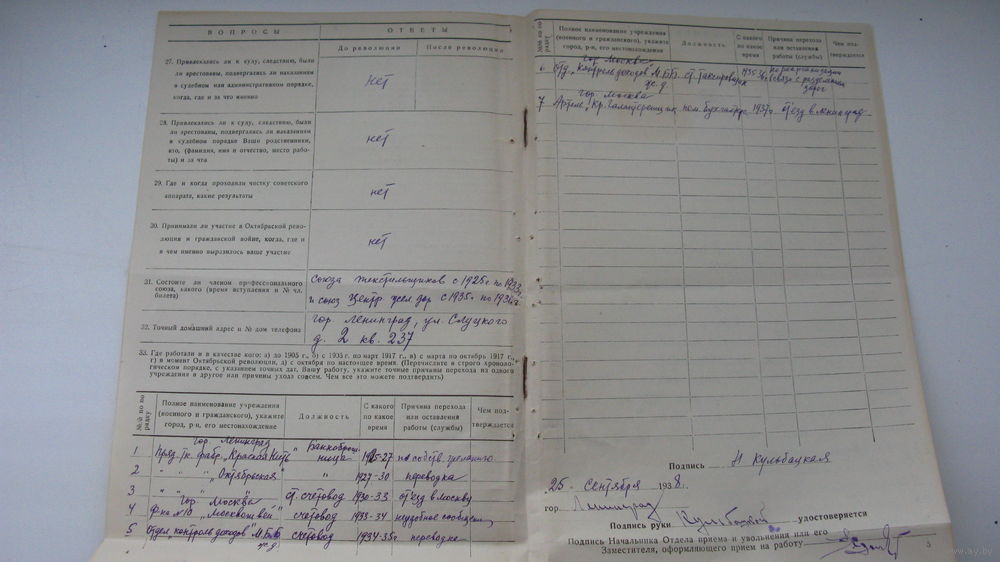 ВОПРОСЫ
ОТВЕТЫ
До революции
После революции
27. Привлекались ли к суду, следствию, были
ли арестованы, подвергались ли наказаниям
в судебном или административном порядке,
когда, где и за что именно
нет
28. Привлекались ли к суду, следствию, были
ли арестованы, подвергались ли наказаниям
в судебном порядке Ваши родственники,
кто, (фамилия, имя и отчество, место рабо-
ты) и за что
нет
29. Где и когда проходили чистку советского
аппарата, какие результаты
нет
30. Принимали ли участие в Октябрьской рево-
люции и гражданской войне, когда, где и
в чем именно выразилось ваше участие
нет
31. Состоите ли членом профессионального
союза, какого (время вступления и № чл.
билета)
Союза текстильщиков с 1925г. по 1933г.
и союз Центр жел дор с 1935г. по 1936г.
32. Точный домашний адрес и № дом телефона
гор. Ленинград, ул. Слуцкого
д. 2 кв. 237
33. Где работали и в качестве кого: а) до 1905 г., б) с 1905 г. по март 1917 г., в) с марта по октябрь 1917 г.,
г) в момент Октябрьской революции, д) с октября по настоящее время (Перечислите в строго хроноло-
гическом порядке, с указанием точных дат, Вашу работу, укажите точные причины перехода из одного
учреждения в другое или причины ухода совсем. Чем все это можете подтвердить)
№№ по порядку
Полное наименование учреждения
(военного и гражданского), укажите
город, р-н, его местонахождение
Должность
С какого
по какое
время
Причина перехода
или оставления
работы (службы)
Чем под-
тверждается
гор. Ленинград
1 Пряд. тк. фабр. „Красная Нить" Банкоброшница 1925-27 по собств. желанию
2 " " „Октябрьская" " 1927-30 переводка
3 " " " ст. счетовод 1930-33 от'езд в москву
гор. Москва
4 ф-ка №10 „Москвошвей" счетовод 1933-34 неудобное сообщен.
5 Отдел „контроль доходов" М.Б.Б. ж.д. счетовод 1934-35г переводка
№№ по порядку
Полное наименование учреждения
(военного и гражданского), укажите
город, р-н, его местонахождение
Должность
С какого
по какое
время
Причина перехода
или оставления
работы (службы)
Чем под-
тверждается
гор. Москва
6 отд. „контроль доходов" М.Б.Б. ж.д. ст. таксировщик 1935-36г в связи с разделением дорог
гор. Москва
7 Артель „Кр. галантерейщик" пом. бухгалтера 1937г от'езд в Ленинград
Подпись Н Кульбацкая
25 Сентября 1938 г.
гор. Ленинград
Подпись руки Кульбацкой удостоверяется
Подпись Начальника Отдела приема и увольнения или его
Заместителя, оформляющего прием на работу
3
www.ay.by